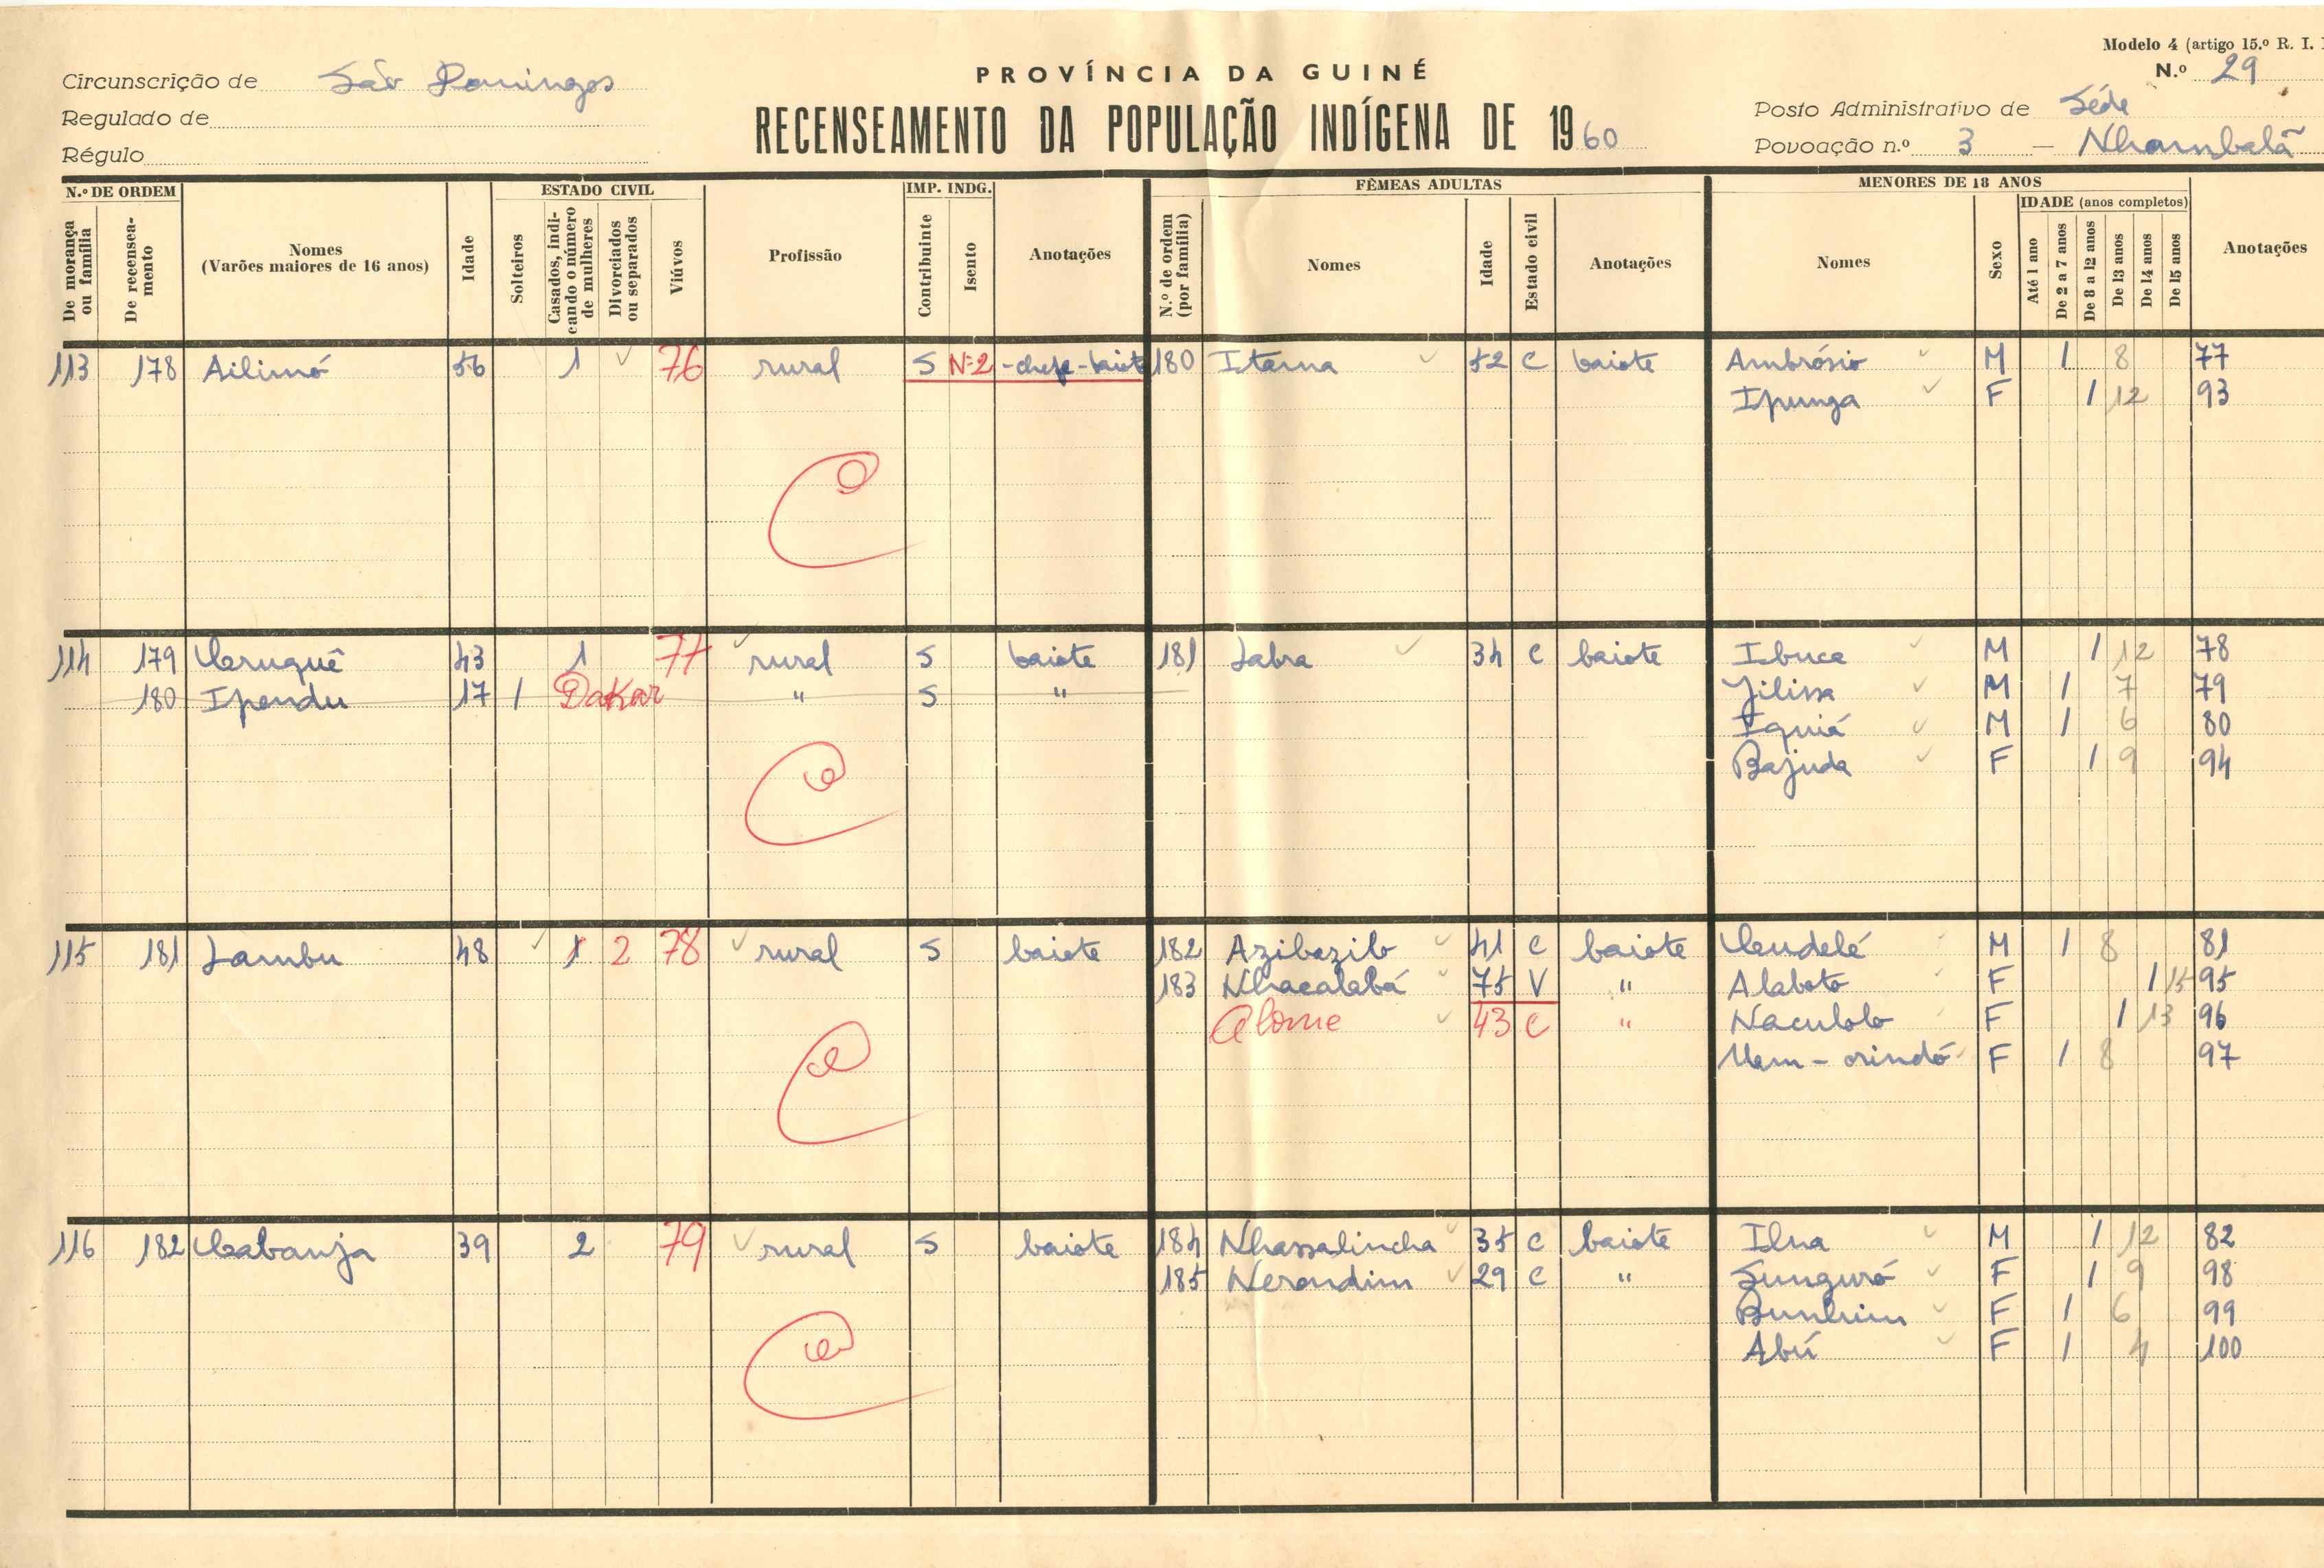 Modelo 4 (artigo 15.º R. I.
PROVÍNCIA DA GUINÉ
N.º 29
Circunscrição de São Domingos
RECENSEAMENTO DA POPULAÇÃO INDÍGENA DE 1960
Posto Administrativo de Séde
Regulado de
Povoação n.º 3 — Nhambalã
Régulo
N.º DE ORDEM
ESTADO CIVIL
IMP. INDG.
FÊMEAS ADULTAS
MENORES DE 18 ANOS
De morança ou família
De recenseamento
Nomes
(Varões maiores de 16 anos)
Idade
Solteiros
Casados, indicando o número de mulheres
Divorciados ou separados
Viúvos
Profissão
Contribuinte
Isento
Anotações
N.º de ordem (por família)
Nomes
Idade
Estado civil
Anotações
Nomes
Sexo
IDADE (anos completos)
Até 1 ano
De 2 a 7 anos
De 8 a 12 anos
De 13 anos
De 14 anos
De 15 anos
Anotações
113 178 Ailimó 56 1 76 rural S Nº2 -chefe-baiote 180 Itama 52 C baiote Ambrósio M 1 8 77
Ipunga F 1 12 93
114 179 43 1 77 rural S baiote 181 Labra 34 C baiote Ibuca M 1 12 78
180 Ipendu 17 1 Dakar " S " Jilissa M 1 7 79
Iquiá M 1 6 80
Bajuda F 1 9 94
115 181 Jambu 48 1 2 78 rural S baiote 182 Azibazilo 41 C baiote M 1 8 81
183 Nhacalabá 75 V " Alaboto F 1 15 95
Alome 43 C " Naculolo F 1 13 96
F 1 8 97
116 182 Cabanja 39 2 79 rural S baiote 184 Nhassalincha 35 C baiote Ilna M 1 12 82
185 Nerondim 29 C " Sunguró F 1 9 98
Bunhim F 1 6 99
Abú F 1 4 100